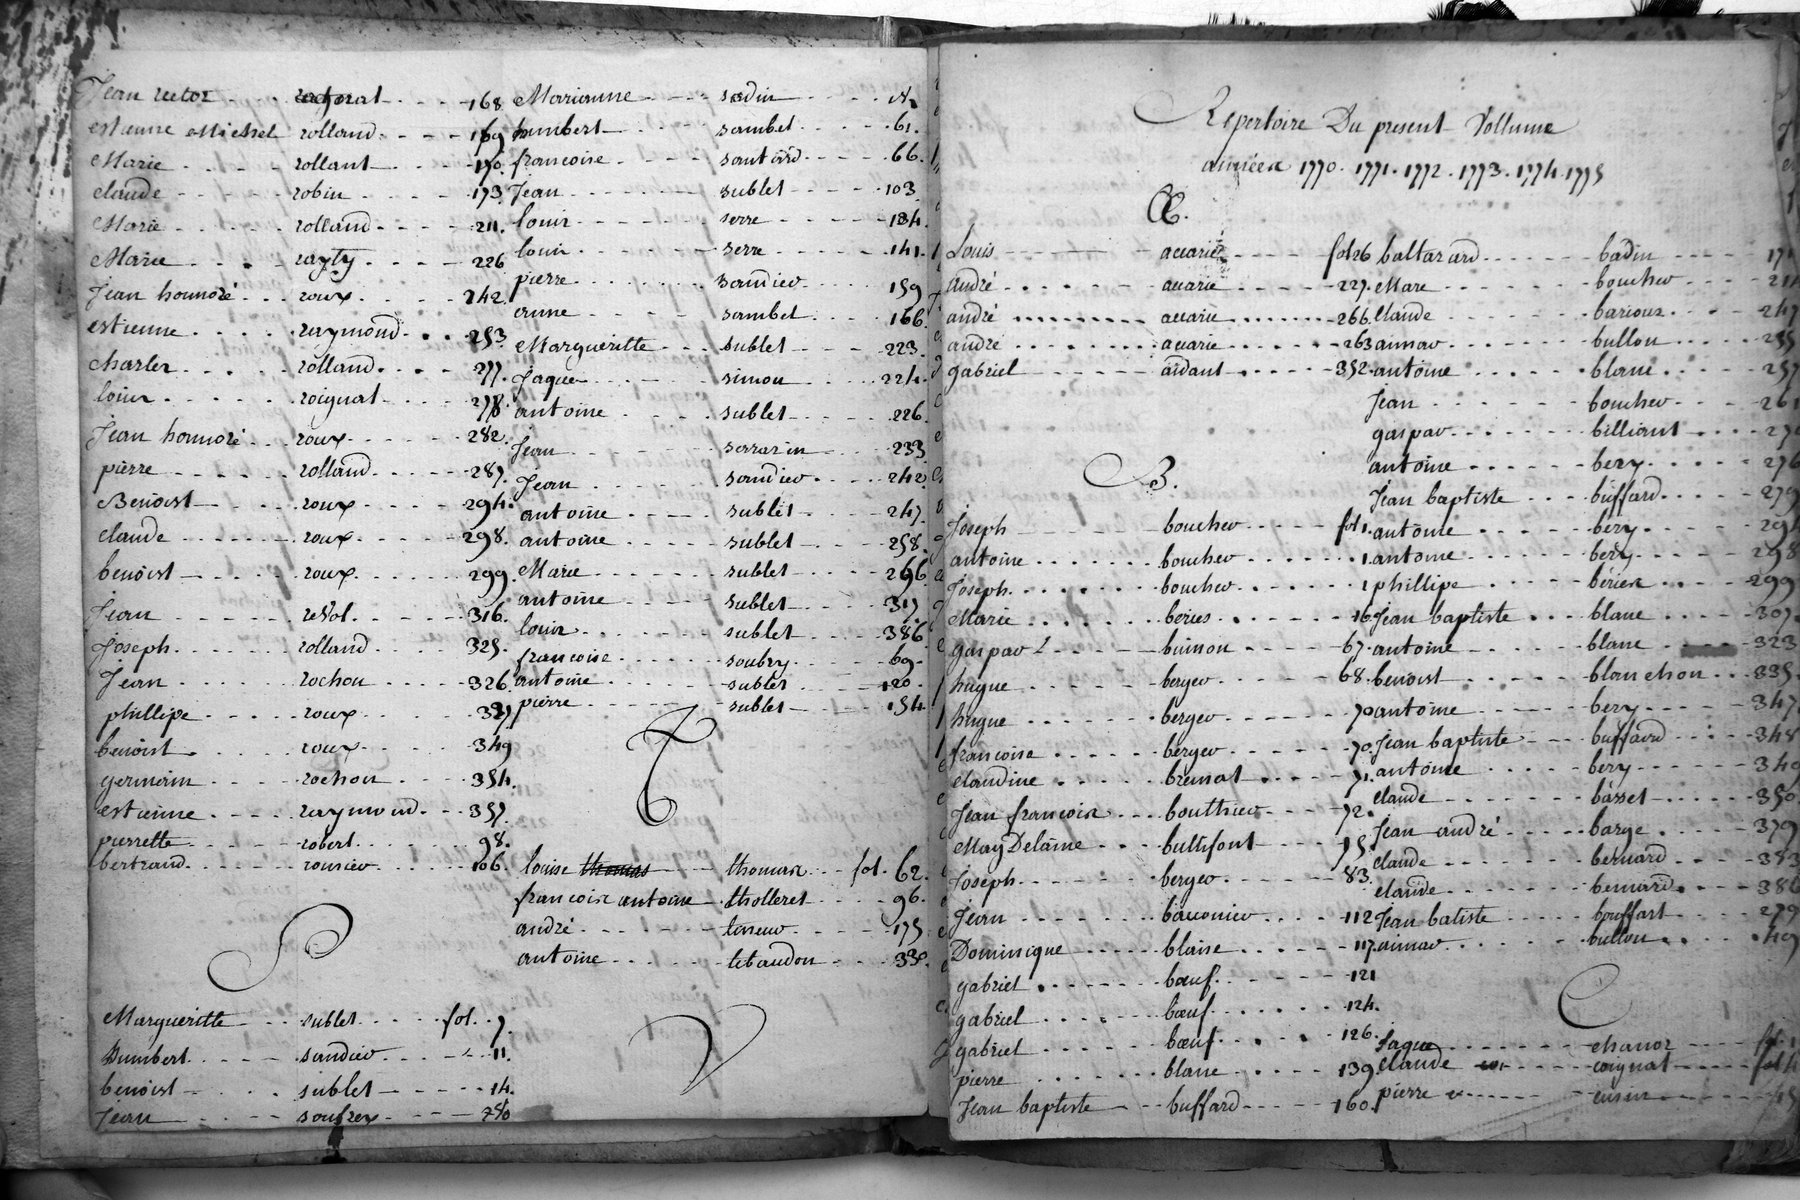 Jean rector rognat 168
estienne Michel rolland 169
Marie rollant 170
claude robin 173
Marie rolland 211
Marie 226
Jean honnoré roux 242
estienne raymond 253
charles rolland 277
louis roignat 278
Jean honnoré roux 282
pierre rolland 287
Benoist roux 294
claude roux 298
benoist roux 299
Jean revol 316
Joseph rolland 325
Jean rochon 326
phillipe roux
benoist roux 349
germain rochon 354
estienne raymond 357
pierrette robert 98
bertrand 106
S
Margueritte sublet fol. 7
humbert sandier 11
benoist sublet 14
Jean
Marianne
humbert sambet 61
francoise 66
Jean sublet 103
louis serre 134
louis serre 141
pierre sandier 159
anne sambet 166
Margueritte sublet 223
Jaque simon 224
antoine sublet 226
Jean serrazin 233
Jean sandier 242
antoine sublet 247
antoine sublet 258
Marie sublet 266
antoine sublet 317
louis sublet 386
francoise soubry 69
antoine sublet 120
pierre sublet 154
T
louise thomas thomas fol. 62
francois antoine tholleret 96
andré 175
antoine tibaudon 330
V
Repertoire Du present Vollume
années 1770. 1771. 1772. 1773. 1774. 1775
A.
Louis acarie fol 26
andré acarie 227
andré acarie 266
andré acarie 263
gabriel aidant 352
B.
Joseph boucher fol 1
antoine boucher 1
Joseph boucher 1
Marie beries 16
gaspar buisson 67
hugue berger 68
hugue berger 70
francoise berger 70
claudine bremat 71
Jean francois bouthier 72
MagDelaine buttifont 75
Joseph berger 83
Jean 112
Dominique blaise 117
gabriel bœuf 121
gabriel bœuf 124
gabriel bœuf 126
pierre blanc 139
Jean baptiste buffard 160
baltazard badin 171
Mare boucher 214
Claude barioz 247
aimar bullon 255
antoine blanc 257
Jean boucher 261
gaspar billiant
antoine bery 276
Jean baptiste buffard 279
antoine bery 294
antoine bery 298
phillipe beries 299
Jean baptiste blanc 307
antoine blanc 323
benoist blanchon 335
antoine bery 347
Jean baptiste buffard 348
antoine bery 349
claude basset 350
Jean andré barge 379
claude bernard 383
claude bernard 386
Jean batiste bouffart 279
aimar bullon 49
C
Jaque chanoz fol 1
Claude coignat fol 4
pierre cusin 15